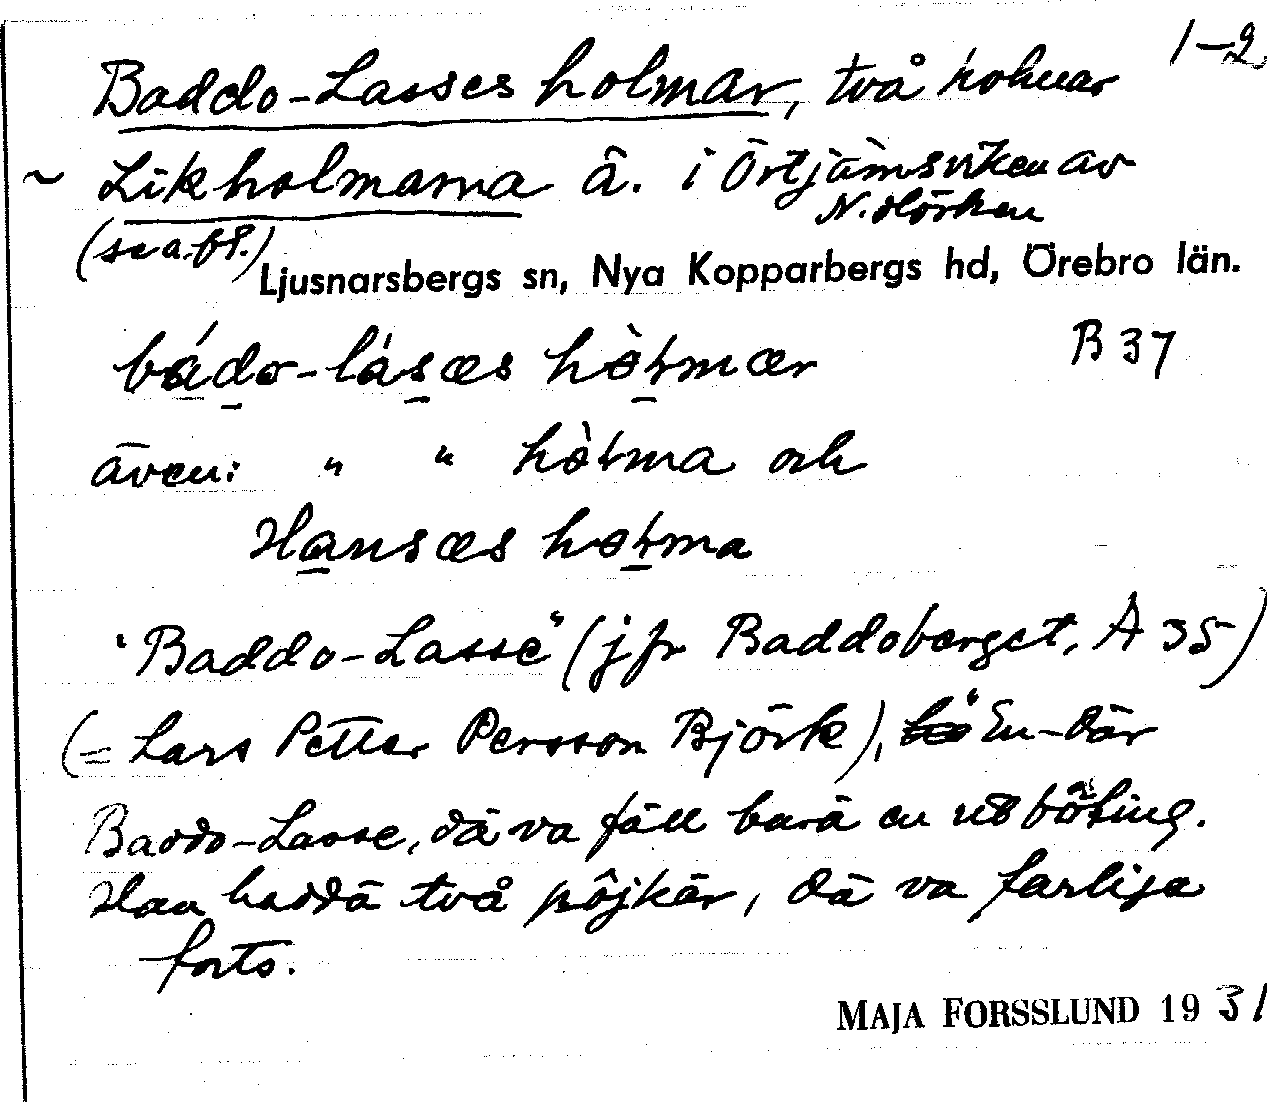 1-2
Baddo-Lasses holmar, två holmar
~ Likholmarna ä. i Örtjärnsviken av
N. Hörken
(se a. bl.)
Ljusnarsbergs sn, Nya Kopparbergs hd, Örebro län.
bádo-lásæs hòłmær B 37
även: " " hòłma och
Hansæs hołma
"Baddo-Lasse" (jfr Baddoberget, A 35)
(= Lars Petter Persson Björk), "En-där
Baddo-Lasse, dä va fäll barä en utböling.
Han haddä två pöjkär, dä va farliga
forts.
MAJA FORSSLUND 1931